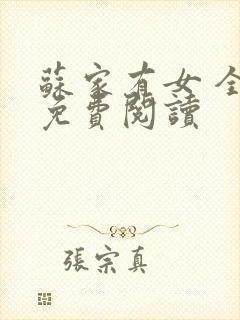 蘇家有女 全
免費閱讀
張宗真